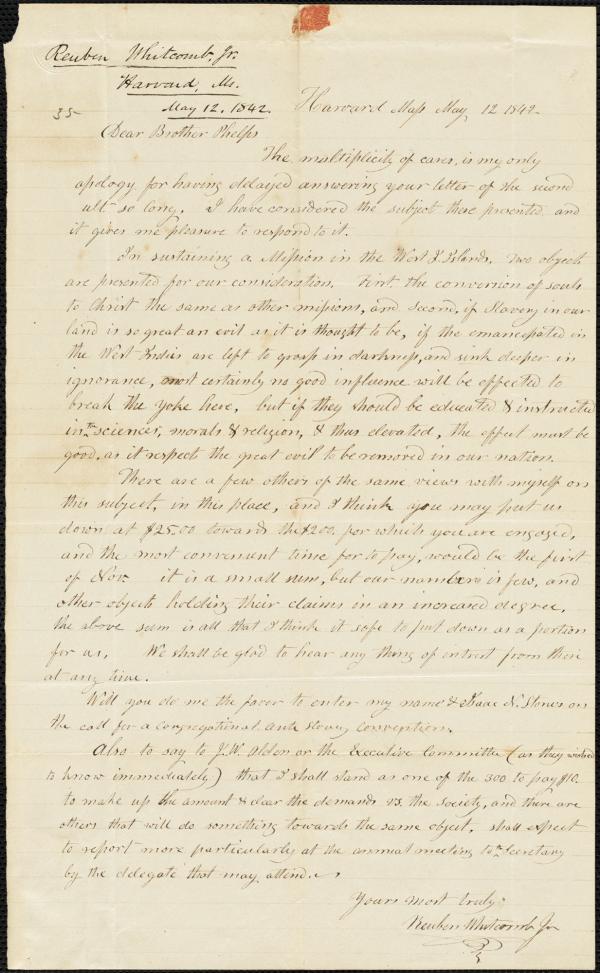 Reuben Whitcomb, Jr.
Harvard, Ms.
May 12, 1842.
35
Harvard Mass May, 12 1842.
Dear Brother Phelps
The multiplicity of cares, is my only
apology for having delayed answering your letter of the second
ult so long. I have considered the subject there presented and
it gives me pleasure to respond to it.
In sustaining a Mission in the West I. Islands, two objects
are presented for our consideration. First the conversion of souls
to Christ the same as other missions, and second, if Slavery in our
land is so great an evil as it is thought to be, if the emancipated in
the West Indies are left to groap in darkness, and sink deeper in
ignorance, most certainly no good influence will be effected to
break the yoke here, but if they should be educated & instructed
in the sciences, morals & religion, & thus elevated, the effect must be
good, as it respects the great evil to be removed in our nation.
There are a few others of the same views with myself on
this subject, in this place, and I think you may put us
down at $25.00 towards the $200. for which you are engaged,
and the most convenient time for to pay, would be the first
of Nov. it is a small sum, but our numbers is few, and
other objects holding their claims in an increased degree,
the above sum is all that I think it safe to put down as a portion
for us. We shall be glad to hear any thing of intrest from there
at any time.
Will you do me the favor to enter my name & Isaac N. Stones on
the call for a congregational anti slavery convention.
Also to say to J. W. Alden or the Executive Committee (as they wished
to know immediately) that I shall stand as one of the 300 to pay $10.
to make up the amount & clear the demands vs. the society, and there are
others that will do something towards the same object, shall expect
to report more particularly at the annual meeting to the Secretary
by the delegate that may attend.
Yours most truly
Reuben Whitcomb Jr